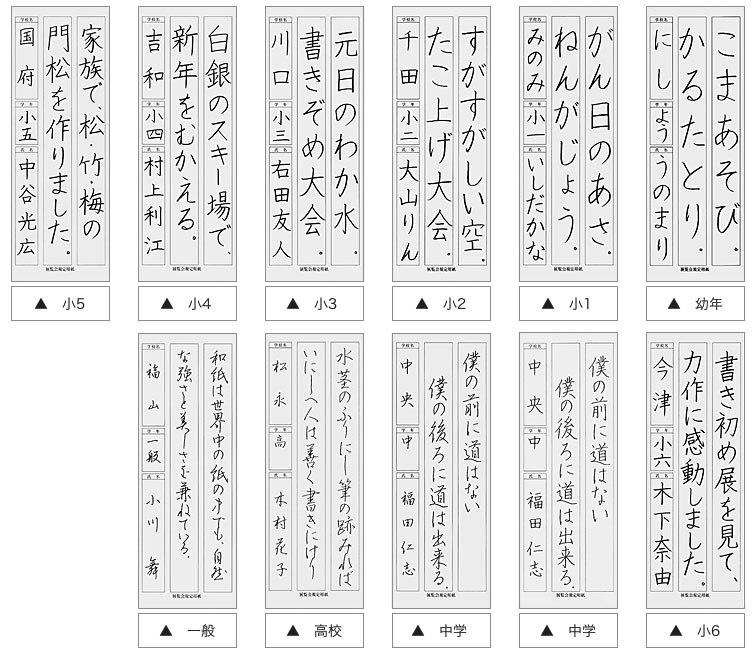 こまあそび。
かるたとり。
学校名
にし
学年
よう
氏名
うのまり
展覧会規定用紙
▲ 幼年
がん日のあさ。
ねんがじょう。
学校名
みのみ
学年
小一
氏名
いしだかな
展覧会規定用紙
▲ 小1
すがすがしい空。
たこ上げ大会。
学校名
千田
学年
小二
氏名
大山りん
展覧会規定用紙
▲ 小2
元日のわか水。
書きぞめ大会。
学校名
川口
学年
小三
氏名
右田友人
展覧会規定用紙
▲ 小3
白銀のスキー場で、
新年をむかえる。
学校名
吉和
学年
小四
氏名
村上利江
展覧会規定用紙
▲ 小4
家族で、松・竹・梅の
門松を作りました。
学校名
国府
学年
小五
氏名
中谷光広
展覧会規定用紙
▲ 小5
書き初め展を見て、
力作に感動しました。
学校名
今津
学年
小六
氏名
木下奈由
展覧会規定用紙
▲ 小6
僕の前に道はない
僕の後ろに道は出来る。
学校名
中央
学年
中
氏名
福田仁志
展覧会規定用紙
▲ 中学
僕の前に道はない
僕の後ろに道は出来る。
学校名
中央
学年
中
氏名
福田仁志
展覧会規定用紙
▲ 中学
水茎のふりにし筆の跡みれば
いにしへ人は善く書きにけり
学校名
松永
学年
高
氏名
木村花子
展覧会規定用紙
▲ 高校
和紙は世界中の紙の中でも、自然
な強さと美しさを兼ねている。
学校名
福山
学年
一般
氏名
小川舞
展覧会規定用紙
▲ 一般